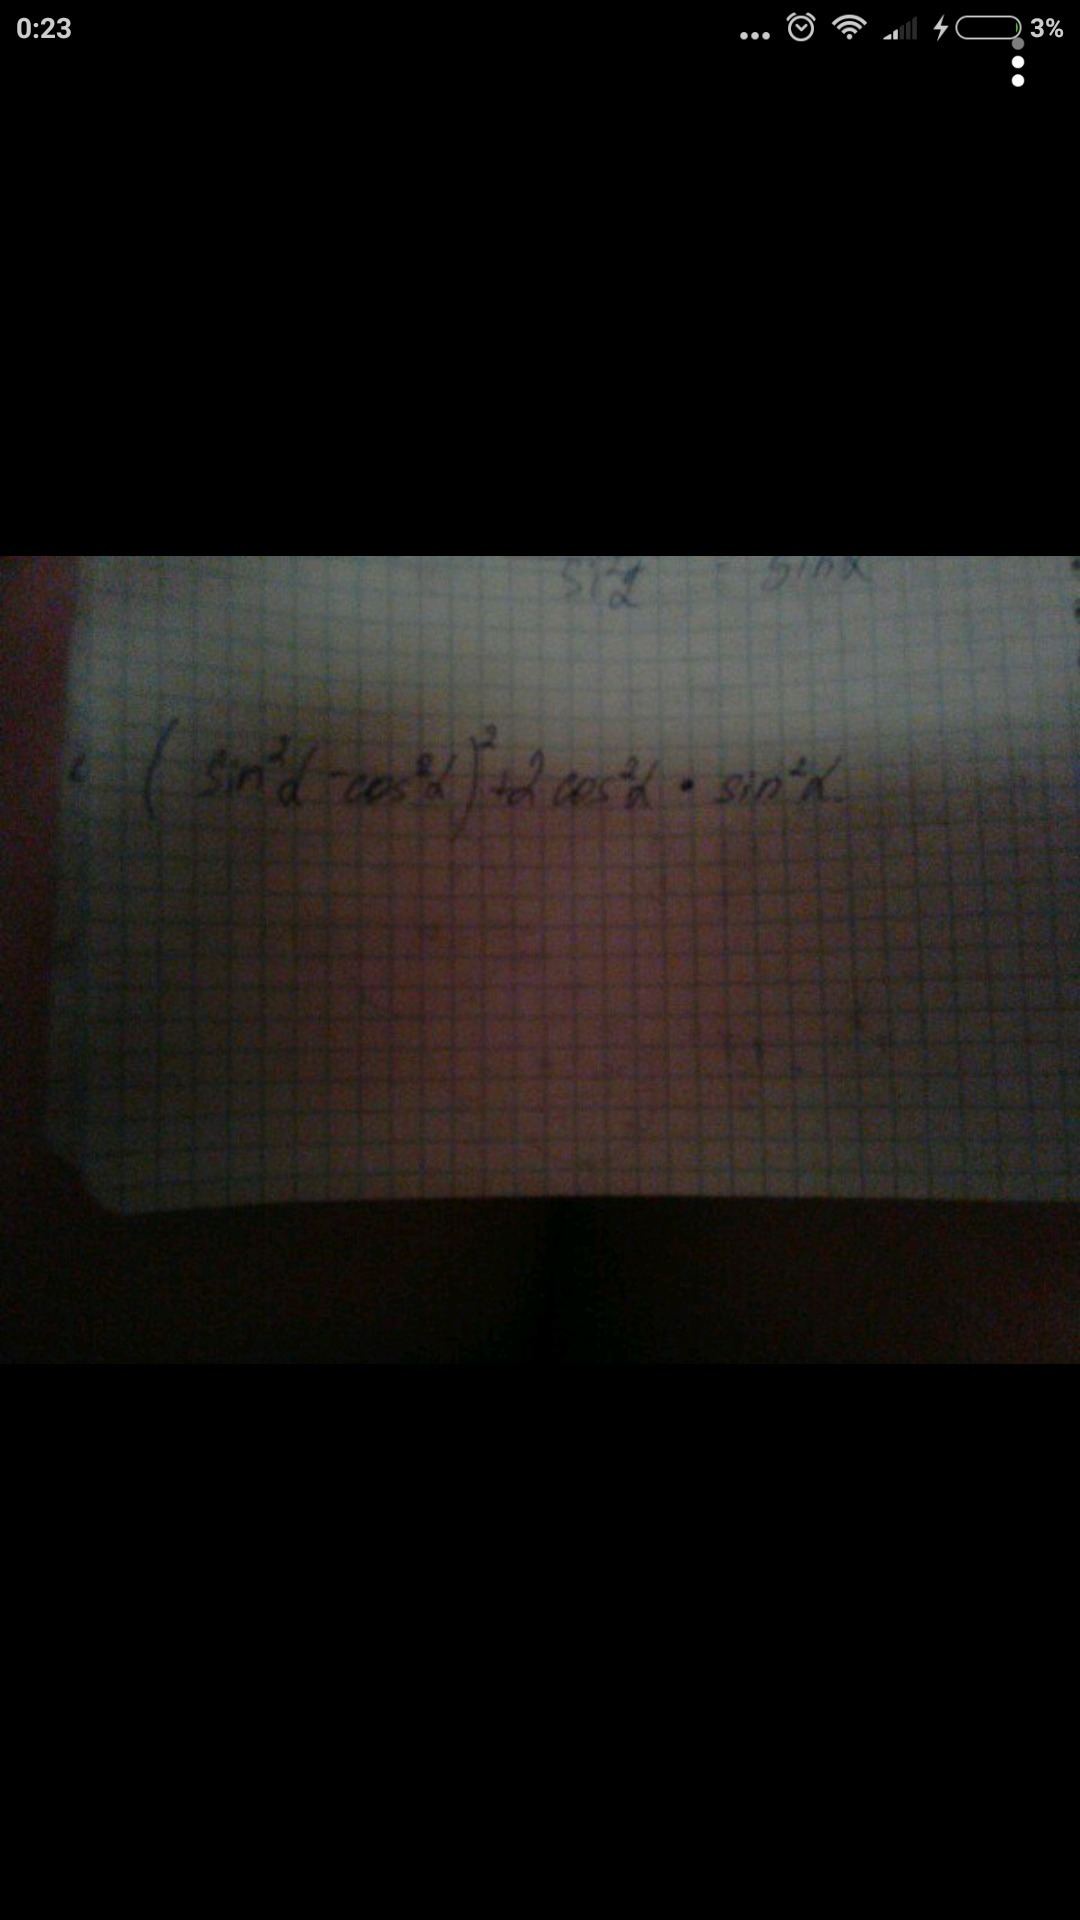 0:23
3%
sinα
( sin²α - cos²α )² + 2 cos²α · sin²α